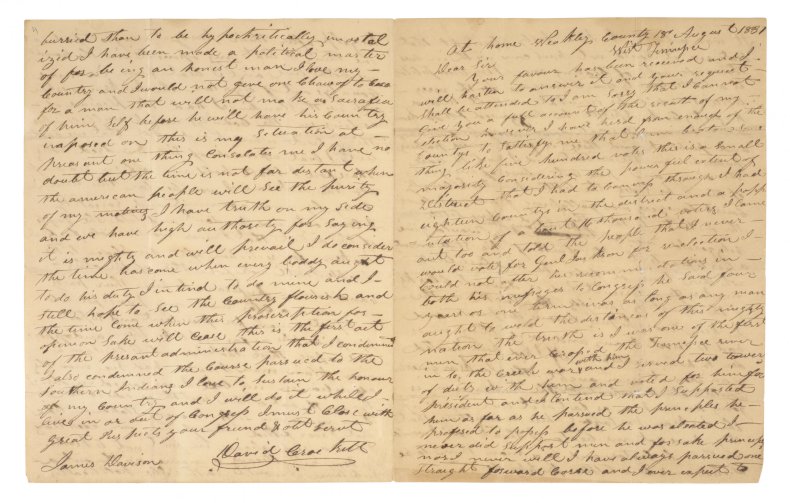 At home Weakley County 18th August 1831
West Tennessee
Dear Sir
Your favour has been received and I
will hasten to answer it and your request
Shall be attended to I am Sorry that I Cannot
give you a full account of the result of my
election however I have hird from enough of the
Countys to Satisfy me that I am beaten Some
thing like five hundred votes this is a Small
majority Considering the powerful extent of
District that I had to Canvass through I had
eighteen Countys in the district and a popp
ulation of a bout thousand voters I Came
out too and told the people that I never
would vote for Genl Jackson for reelection I
Could not after his recommendations in
both his messages to Congress he Said four
years or one term was as long as any man
aught to the distances of this mighty
nation the truth is I was one of the first
men that ever Crossed the Tennessee river
in to the Creek war with him and I served two towers
of duty with him and voted for him for
president and Contend that I Supported
him as far as he pursued the principles he
professed to possess before he was elected I
never did Support men and forsake principles
nor I never will I have always parsued one
straight forward Corse and I ever expect to
burried than to be hypocritically imortal
ized I have been made a political marter
of for being an honest man I love my
Country and I would not give one Chaw of tobaco
for a man that will not make a Sacrafice
of him Self before he will have his Country
imposed on this is my Situation at
preasant one thing Consolates me I have no
doubt but the time is not far distant when
the american people will See the purity
of my motives I have truth on my Side
and we have high authority for Saying
it is mighty and will prevail I do consider
the time has come when every boddy aught
to do his duty I intend to do mine and I
Still hope to See the Country flourish and
the time Come when this proscription for
opinion Sake will Cease this is the first act
of the presant administration that I condemned
I also condemned the Course parsued to the
Southern Indians I love to Sustain the honour
of my Country and I will do it while I
live in or out of Congress I must Close with
Great Respects your friend & obt Servt
David Crockett
James Davison